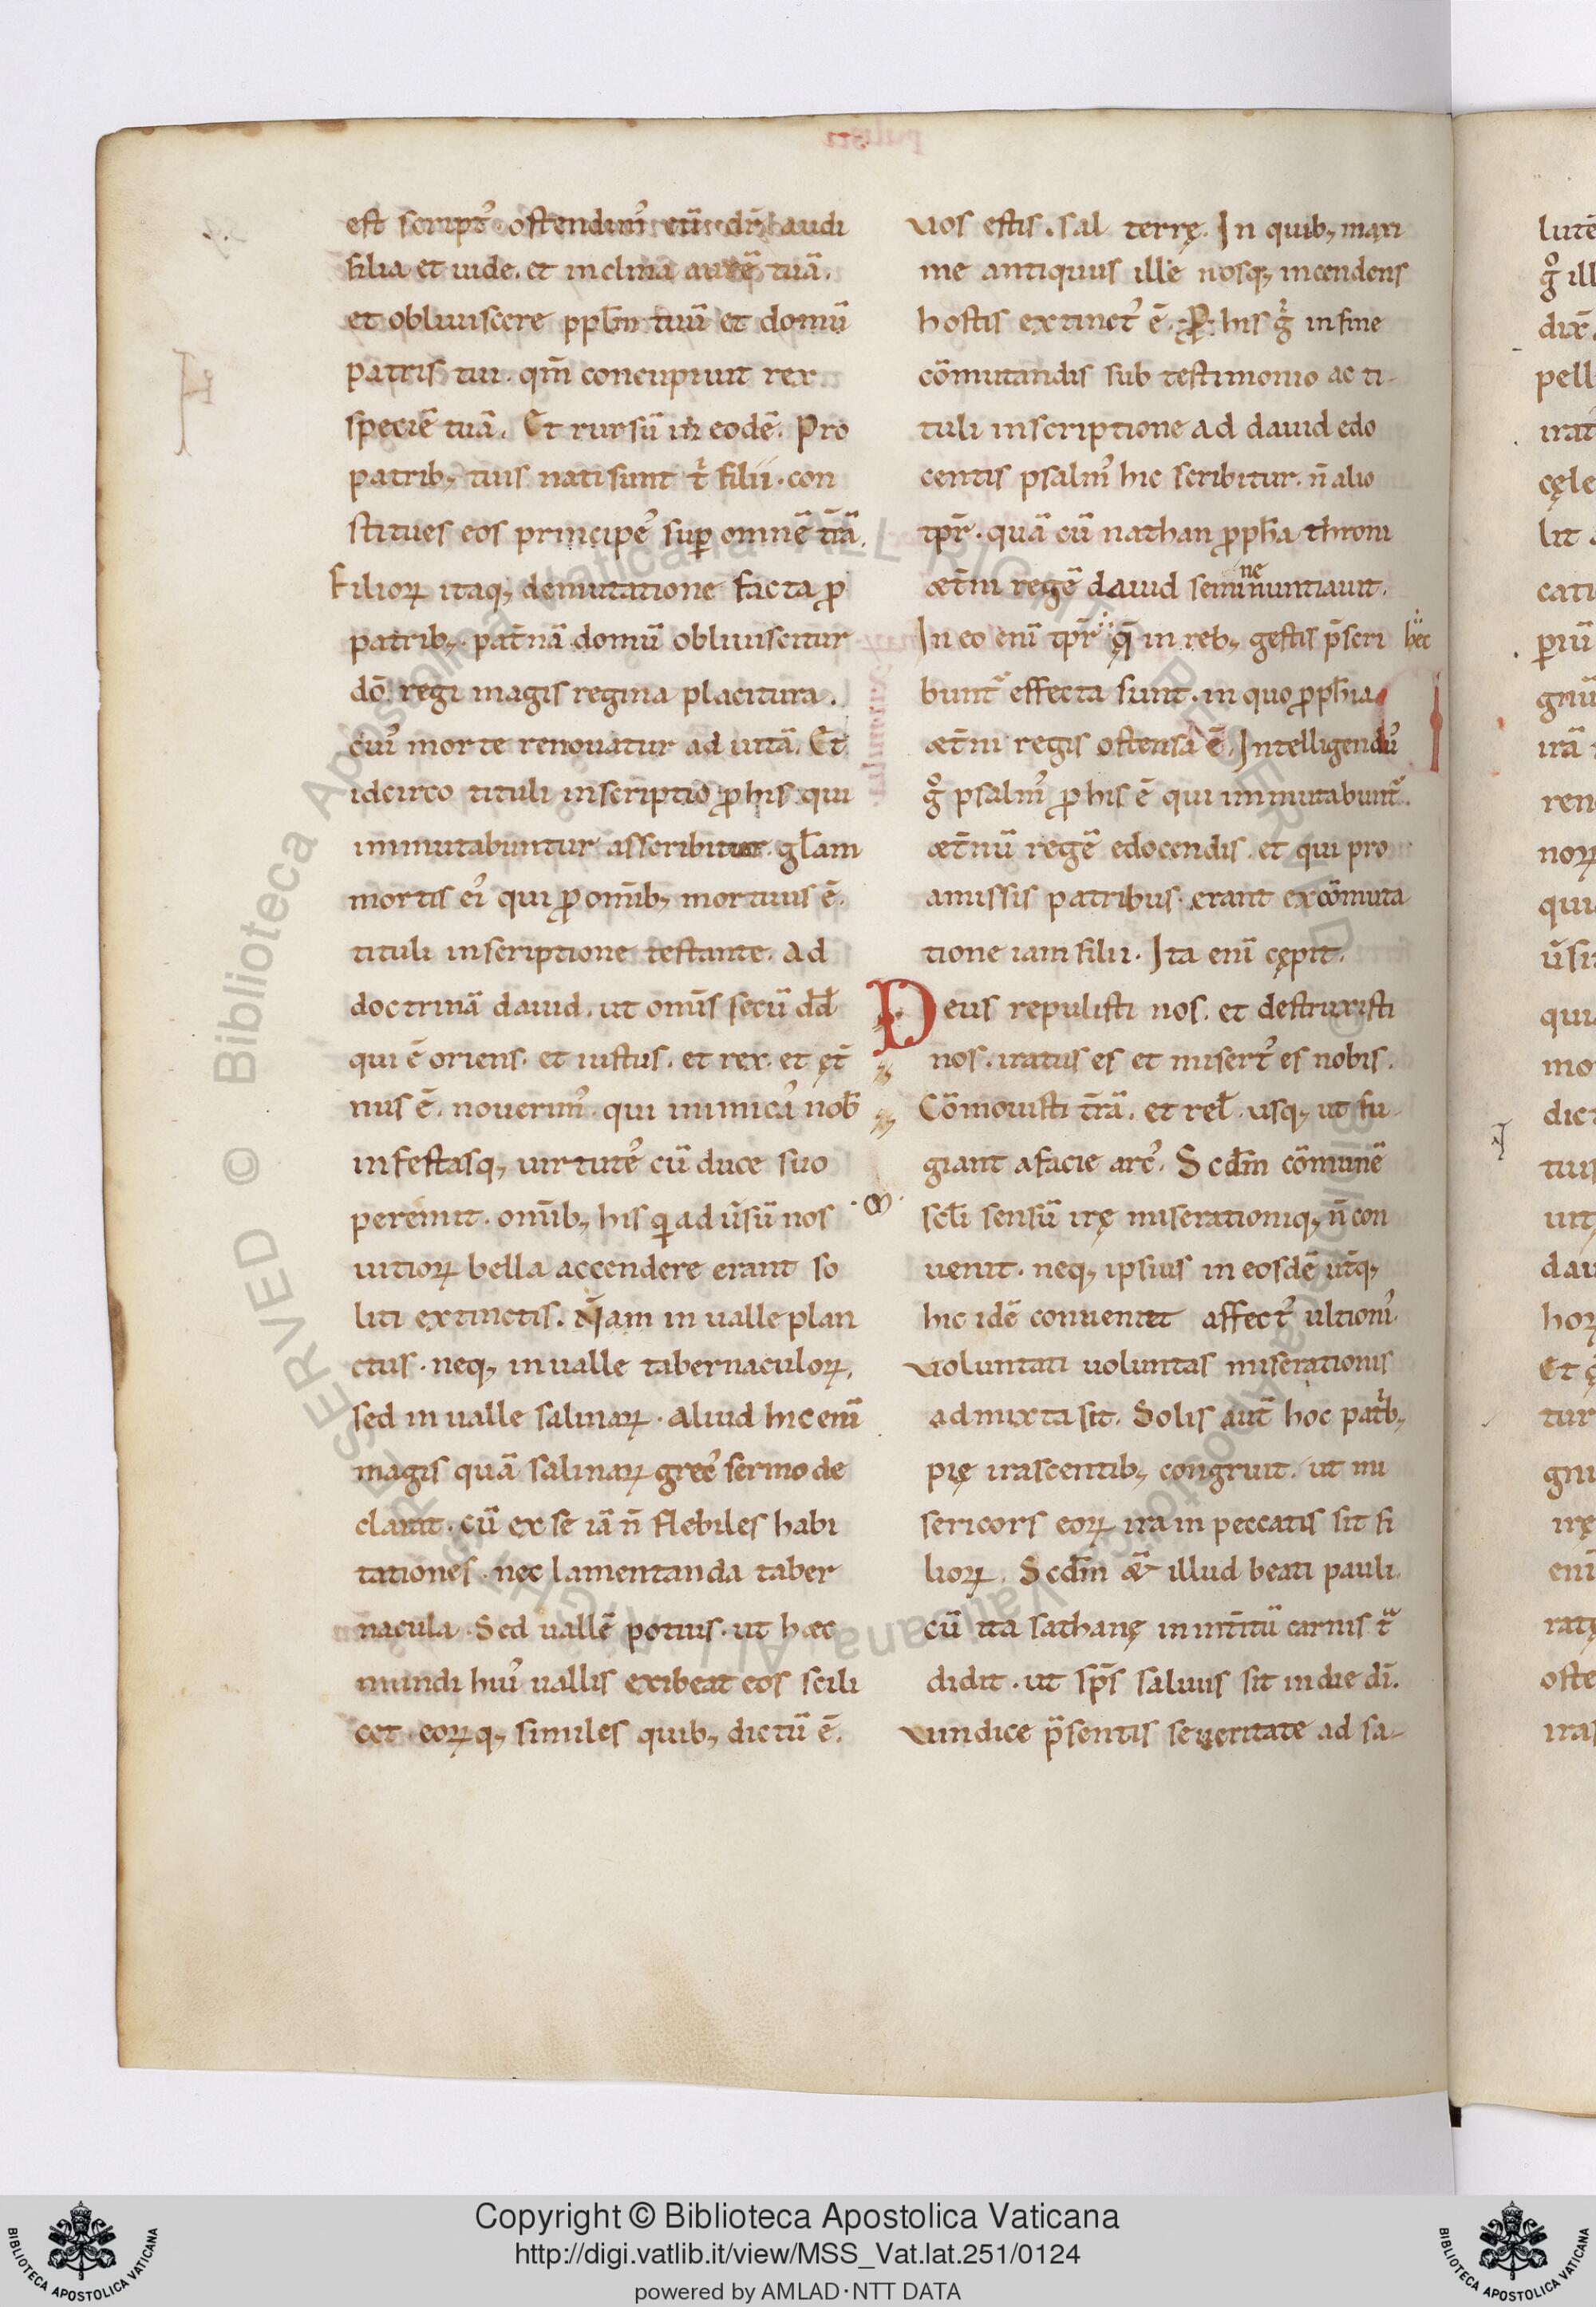 est scriptꝰ ostendimꝰ cū dr̄ audi
filia et uide. et inclina aurē tuā.
et obliuiscere ppl̄m tuū et domū
patris tui. qm̄ concupiuit rex
speciē tuā. Et rursū in eodē. Pro
patrib; tuis nati sunt t' filii. con
stitues eos principeˀ suꝑ omnē tr̄ā.
Filioꝝ itaq; demutatione facta ꝓ
patrib;. pat̄nā domū obliuiscitur
dō regi magis regina placitura.
cuiˀ morte renouatur ad uitā. Et
idcirco tituli inscriptio ꝓ his qui
immutabuntur asscribitur. gl̄am
mortis eiˀ qui ꝓ omīb; mortuus ē.
tituli inscriptione testante. Ad
doctrinā dauid. ut om̄s secū dd̄
qui ē oriens. et iustus. et rex. et ęt̄
nus ē. nouerimˀ. qui inimicaˀ nob̄
infestasq; uirtuteˀ cū duce suo
peremit. omīb; his qi ad ūsū nos
uitioꝝ bella accendere erant so
liti extinctis. Nam in ualle plan
ctus. neq; in ualle tabernaculoꝝ,
sed in ualle salinaꝝ. aliud hic enī
magis quā salinaꝝ grecˀ sermo de
clarat. cū ex se iā n̄ flebiles habi
tationes. nec lamentanda taber
nacula. Sed uallē potius. ut hæc
mundi huiˀ uallis exibeat eos scili
cet. eoꝝq; similes quib; dictū ē.
uos estis. sal terrę. In quib; maxi
me antiquus ille nosq; incendens
hostis extinctˀ ē. Ꝓ his g̊ in fine
cōmutandis sub testimonio ac ti-
tuli inscriptione ad dauid edo
centis psalmˀ hic scribitur. n̄ alio
tpr̄. quā cū nathan ꝓph̄a throni
æt̄ni regē dauid semini nuntiauit.
ne
In eo enī tpr̄ q̄ in reb; gestis p̄scri hec
bunt᷑ effecta sunt. in quo ꝓph̄ia
æt̄ni regis ostensa ē. Intelligendˀ
g̊ psalmˀ ꝓ his ē qui immutabunt᷑.
æt̄nū regē edocendis. et qui pro
amissis patribus. erant ex cōmuta
tione iam filii. Ita enī cępit.
Deus repulisti nos. et destruxisti
nos. iratus es et misertˀ es nobis.
Cōmouisti tr̄ā. et rel̄. usq; ut fu-
giant a facie arcˀ. Scdm̄ cōmunē
scl̄i sensū irę miserationiq; n̄ con
uenit. neq; ipsius in eosdē ut̄q;
hic idē conueniet affectˀ ultioni
uoluntati uoluntas miserationis
admixta sit. Solis aut̄ hoc patrib;
pię irascentib; congruit. ut mi
sericors eoꝝ ira in peccatis sit fi
lioꝝ. Scdm̄ illud beati pauli.
cū ita sathanę in int̄itū carnis tra
didit. ut sps̄ saluus sit in die dī.
Vindice p̄sentis seueritate ad sa-
Copyright © Biblioteca Apostolica Vaticana
http://digi.vatlib.it/view/MSS_Vat.lat.251/0124
powered by AMLAD·NTT DATA